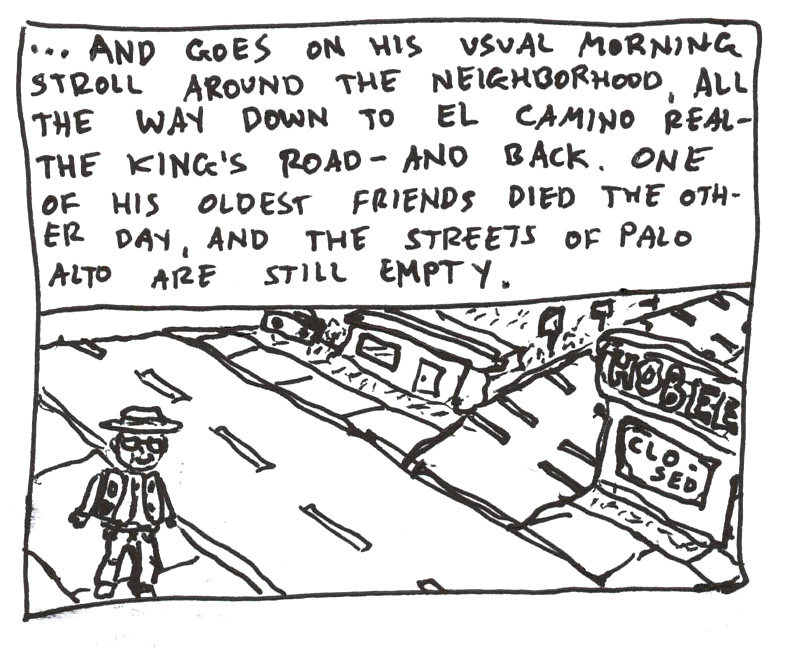 ... AND GOES ON HIS USUAL MORNING
STROLL AROUND THE NEIGHBORHOOD, ALL
THE WAY DOWN TO EL CAMINO REAL-
THE KING'S ROAD - AND BACK. ONE
OF HIS OLDEST FRIENDS DIED THE OTH-
ER DAY, AND THE STREETS OF PALO
ALTO ARE STILL EMPTY.
HOBEE
CLO-
SED